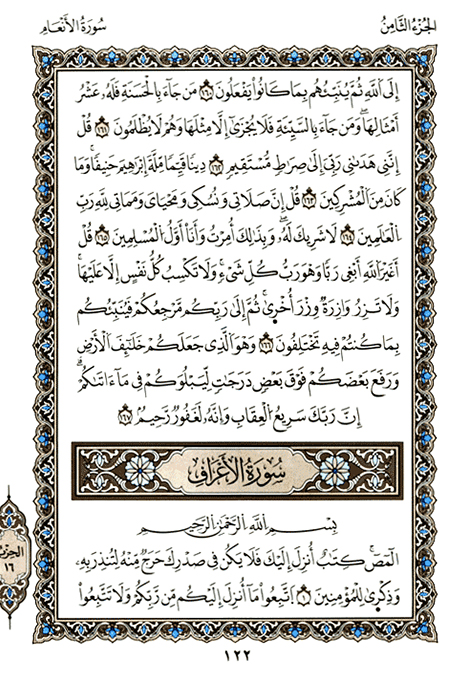 الجُزْءُ الثَّامِنُ
سُورَةُ الأَنْعَامِ
إِلَى اَللَّهِ ثُمَّ يُنَبِّئُهُم بِمَا كَانُواْ يَفْعَلُونَ ١٦٠ مَن جَآءَ بِالْحَسَنَةِ فَلَهُۥ عَشْرُ
أَمْثَالِهَا وَمَن جَآءَ بِالسَّيِّئَةِ فَلَا يُجْزَىٰٓ إِلَّا مِثْلَهَا وَهُمْ لَا يُظْلَمُونَ ١٦١ قُلْ
إِنَّنِي هَدَىٰنِي رَبِّيَ إِلَىٰ صِرَاطٍ مُّسْتَقِيمٍ ١٦٢ دِينًا قَيِّمًا مِّلَّةَ إِبْرَٰهِيمَ حَنِيفًا وَمَا
كَانَ مِنَ اَلْمُشْرِكِينَ ١٦٣ قُلْ إِنَّ صَلَاتِي وَنُسُكِي وَمَحْيَاي وَمَمَاتِي لِلَّهِ رَبِّ
اِلْعَٰلَمِينَ ١٦٤ لَا شَرِيكَ لَهُۥ وَبِذَٰلِكَ أُمِرْتُ وَأَنَا أَوَّلُ اُلْمُسْلِمِينَ ١٦٥ قُلْ
أَغَيْرَ اَللَّهِ أَبْغِي رَبًّا وَهُوَ رَبُّ كُلِّ شَيْءٍ وَلَا تَكْسِبُ كُلُّ نَفْسٍ إِلَّا عَلَيْهَا
وَلَا تَزِرُ وَازِرَةٌ وِزْرَ أُخْرَىٰ ثُمَّ إِلَىٰ رَبِّكُم مَّرْجِعُكُمْ فَيُنَبِّئُكُم
بِمَا كُنتُمْ فِيهِ تَخْتَلِفُونَ ١٦٦ وَهُوَ اَلَّذِي جَعَلَكُمْ خَلَٰٓئِفَ اَلْأَرْضِ
وَرَفَعَ بَعْضَكُمْ فَوْقَ بَعْضٍ دَرَجَٰتٍ لِّيَبْلُوَكُمْ فِي مَآ ءَاتَىٰكُمْ
إِنَّ رَبَّكَ سَرِيعُ اُلْعِقَابِ وَإِنَّهُۥ لَغَفُورٌ رَّحِيمٌ ١٦٧
سُورَةُ الأَعْرَافِ
بِسْمِ اللَّهِ الرَّحْمَٰنِ الرَّحِيمِ
الٓمٓصٓ كِتَٰبٌ أُنزِلَ إِلَيْكَ فَلَا يَكُن فِي صَدْرِكَ حَرَجٌ مِّنْهُ لِتُنذِرَ بِهِۦ
وَذِكْرَىٰ لِلْمُؤْمِنِينَ ١ اَتَّبِعُواْ مَا أُنزِلَ إِلَيْكُم مِّن رَّبِّكُمْ وَلَا تَتَّبِعُواْ
الحِزْبُ
١٦
١٢٢